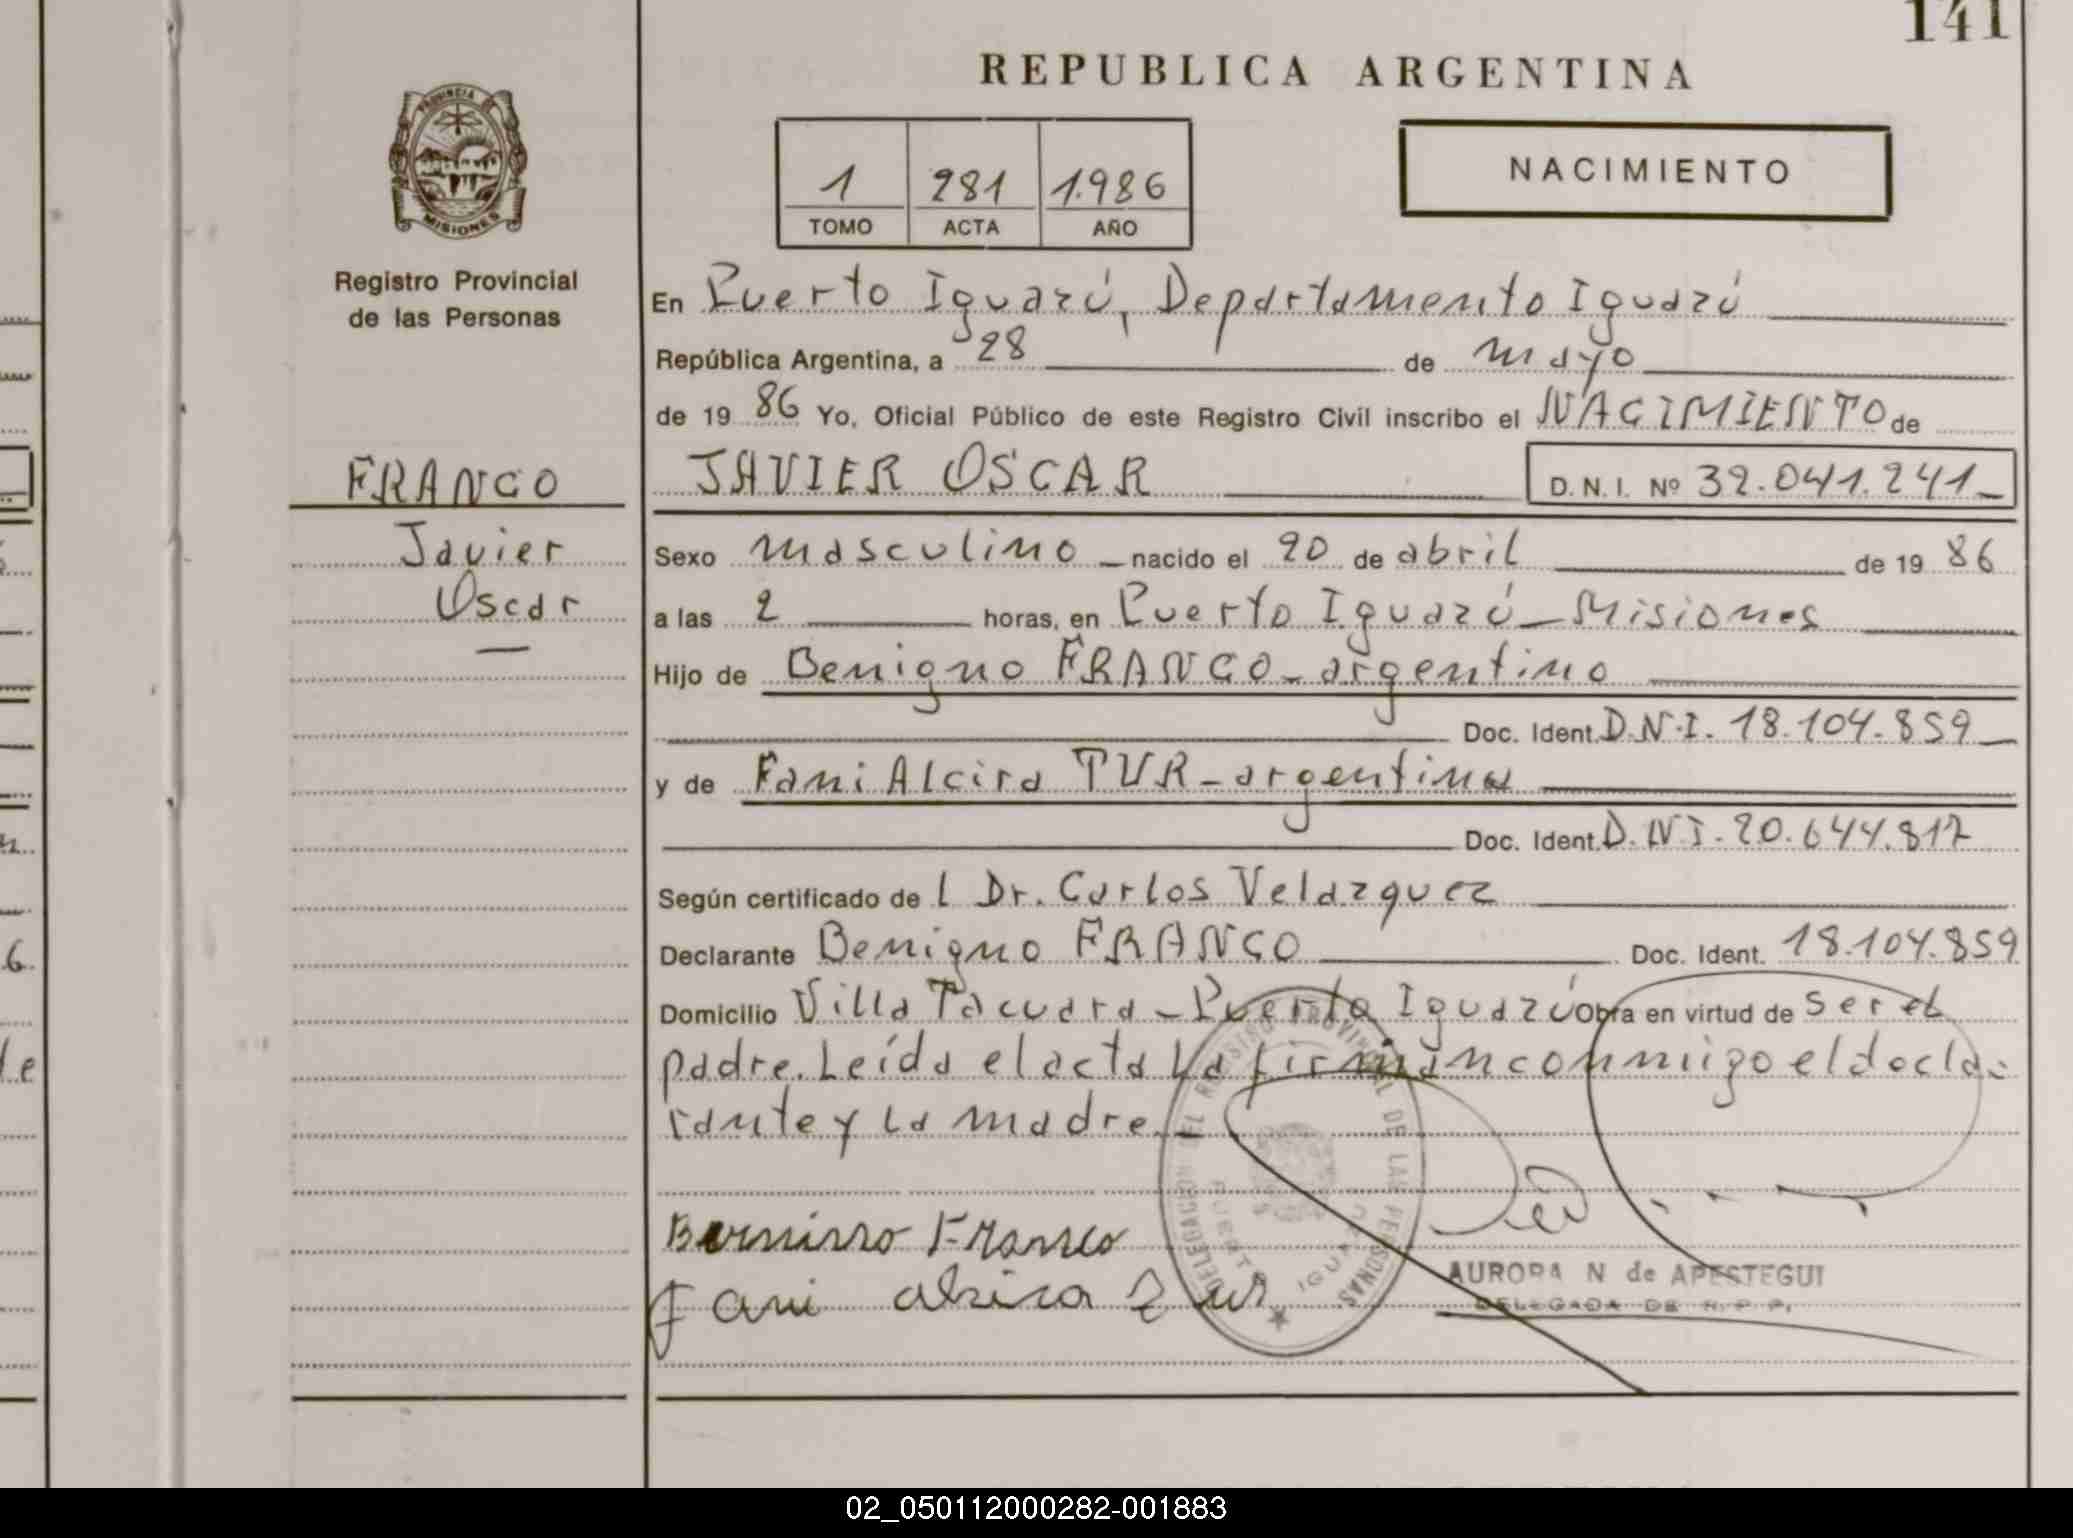 141
REPUBLICA ARGENTINA
PROVINCIA DE
MISIONES
Registro Provincial
de las Personas
1 281 1.986
TOMO ACTA AÑO
NACIMIENTO
En Puerto Iguazú, Departamento Iguazú
República Argentina, a 28 de mayo
de 19 86 Yo, Oficial Público de este Registro Civil inscribo el NACIMIENTO de
FRANCO
JAVIER OSCAR D. N. I. Nº 32.041.241
Javier
Oscar
Sexo masculino nacido el 20 de abril de 19 86
a las 2 horas, en Puerto Iguazú - Misiones
Hijo de Benigno FRANCO - argentino
Doc. Ident. D.N.I. 18.104.859
y de Fani Alcira TUR - argentina
Doc. Ident. D.N.I. 20.644.817
Según certificado de l Dr. Carlos Velazquez
Declarante Benigno FRANCO Doc. Ident. 18.104.859
Domicilio Villa Tacuara - Puerto Iguazú Obra en virtud de ser el
padre. Leída el acta la firman conmigo el decla-
rante y la madre. -
DELEGACION DEL REGISTRO PROVINCIAL DE LAS PERSONAS
PUERTO IGUAZU
Franco
Fani alsira Tur
AURORA N de APESTEGUI
DELEGADA DE R. P. P.
02_050112000282-001883